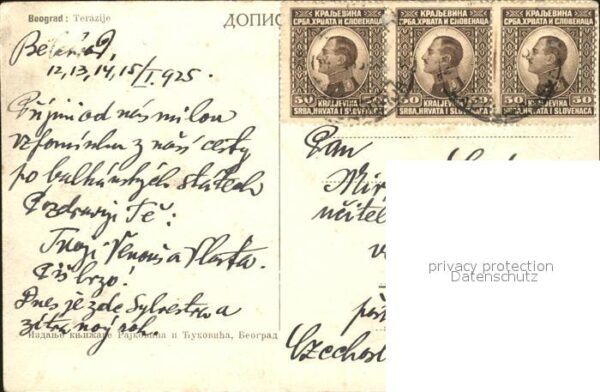 Beograd : Terazije
ДОПИС
КРАЉЕВИНА КРАЉЕВИНА КРАЉЕВИНА
СРБА, ХРВАТА И СЛОВЕНАЦА СРБА, ХРВАТА И СЛОВЕНАЦА СРБА, ХРВАТА И СЛОВЕНАЦА
50 50 50 50 50 50
KRALJEVINA KRALJEVINA KRALJEVINA
SRBA, HRVATA I SLOVENACA SRBA, HRVATA I SLOVENACA SRBA, HRVATA I SLOVENACA
12, 13, 14, 15/I. 925.
Přijmi od nás milou
vzpomínku z naší cesty
po balkánských státech
Pozdravují Tě:
Tvoji Venouš a Vlasta.
Piš brzo!
Dnes je zde Sylvestr a
zítra nový rok.
Издање књижаре Рајковића и Ђуковића, Београд
Pan
Mir
učitel
v
Czechos
privacy protection
Datenschutz